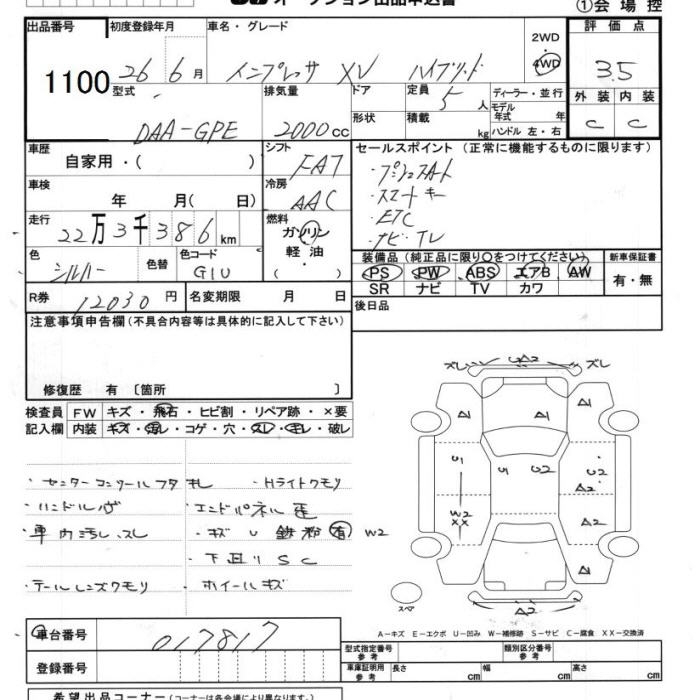 オークション出品申込書 ①会場控
出品番号 初度登録年月 車名・グレード 2WD・4WD 評価点
1100 26 6月 インプレッサ XV ハイブリッド 3.5
型式 排気量 ドア 定員 5人 ディーラー・並行 外装 内装
DAA-GPE 2000cc 形状 積載 kg モデル年式 年 C C
ハンドル 左・右
車歴 シフト セールスポイント (正常に機能するものに限ります)
自家用・( ) FAT ・プッシュスタート
車検 冷房 ・スマートキー
年 月( 日) AAC ・ETC
走行 燃料 ・ナビ・TV
22万3千386km ガソリン
色 色替 色コード 軽油・ 装備品 (純正品に限り○をつけてください) 新車保証書
シルバー G1U ( ) PS PW ABS エアB AW 有・無
R券 12030円 名変期限 月 日 SR ナビ TV カワ
注意事項申告欄(不具合内容等は具体的に記入して下さい) 後日品
修復歴 有 〔箇所 〕
検査員 FW キズ・飛石・ヒビ割・リペア跡・×要
記入欄 内装 キズ・汚れ・コゲ・穴・スレ・キレ・破レ
ズレ U2 ズレ
A1 A1 A1
U1 U U2 U2
A2
W2 XX A2
A1
A2
スペア
・センターコンソールフタキレ ・Hライトクモリ
・ハンドル ・エンドパネル
・車内汚レ、スレ ・キズ U 鉄粉有 W2
・下廻り SC
・テールレンズクモリ ・ホイールキズ
A-キズ E-エクボ U-凹み W-補修跡 S-サビ C-腐食 XX-交換済
車台番号 017817 型式指定番号 参考 類別区分番号 参考
登録番号 車庫証明用 参考 長さ cm 幅 cm 高さ cm
希望出品コーナー (コーナーは各会場により異なります。)